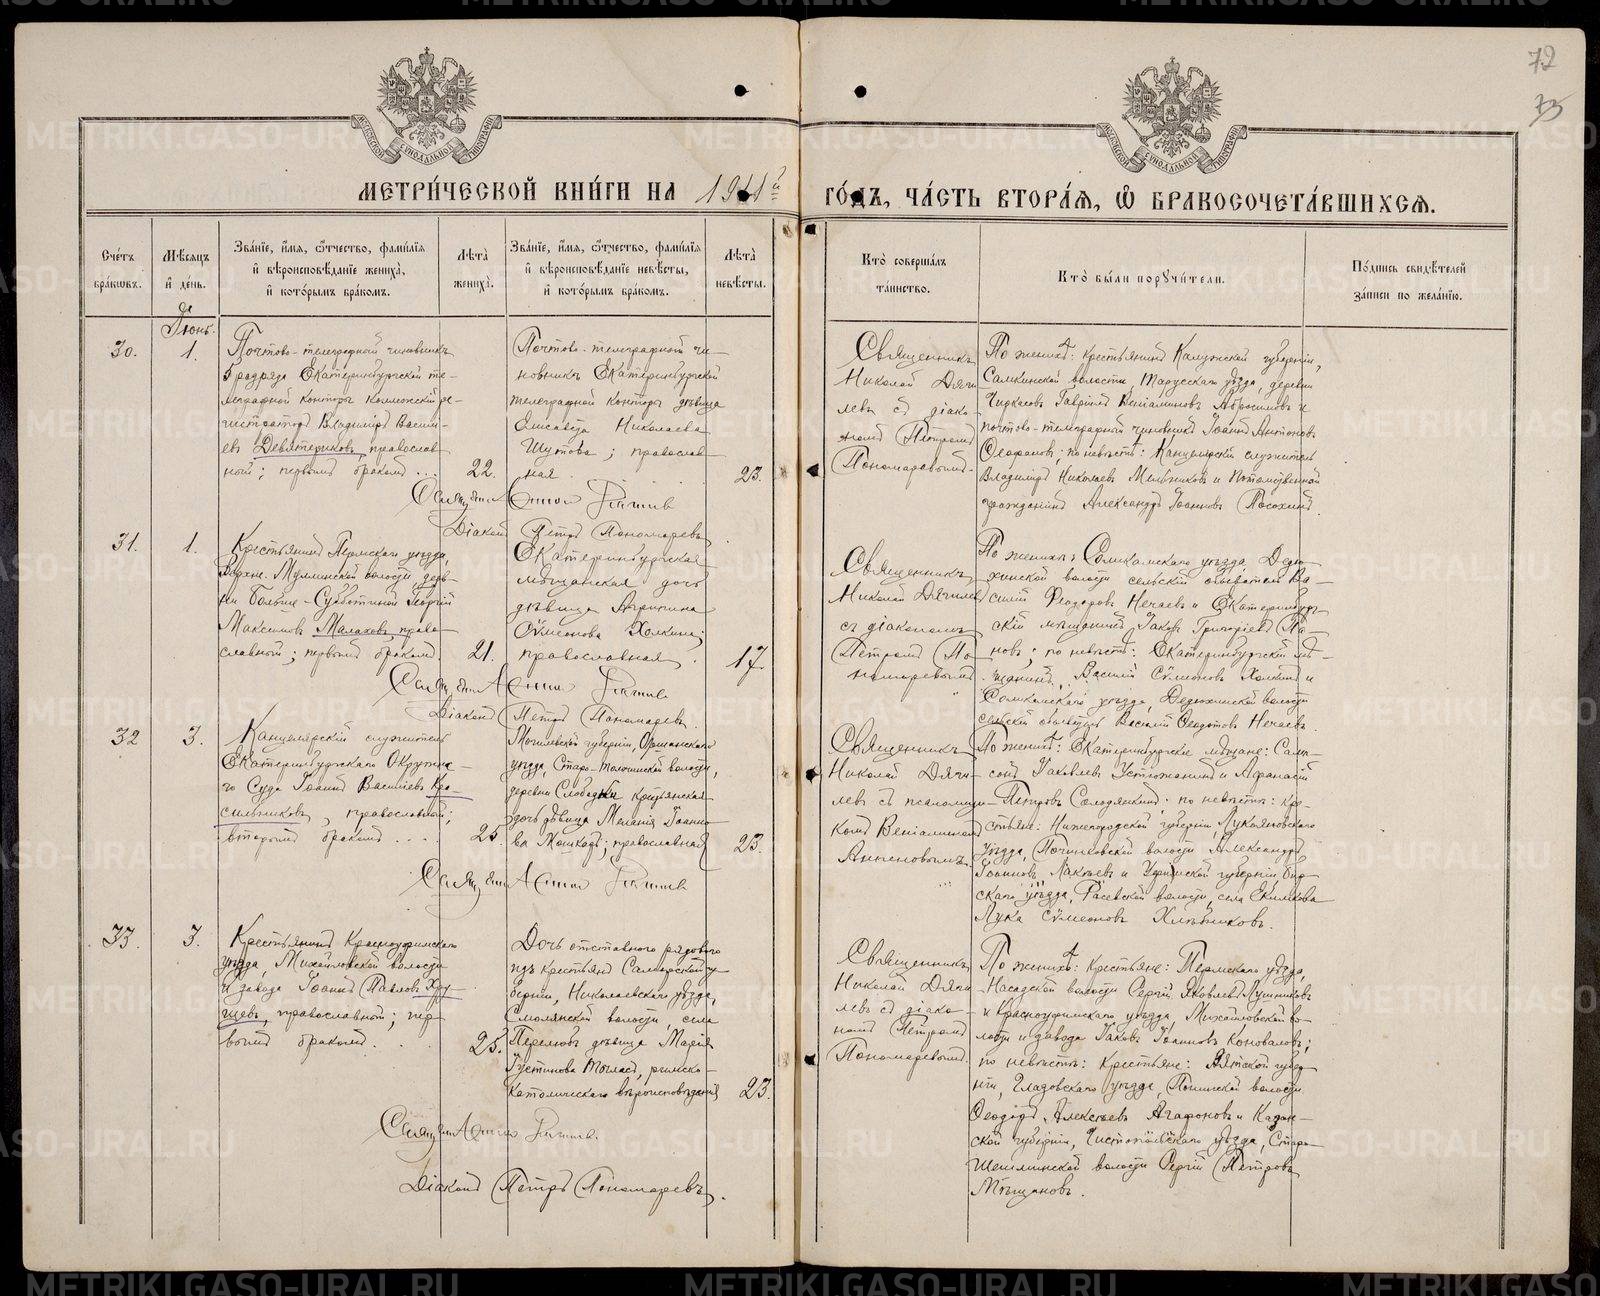 72
73
МЕТРИ́ЧЕСКОЙ КНИ́ГИ НА 1911 й
ГО́ДЪ, ЧА́СТЬ ВТОРА́Я, Ѽ БРАКОСОЧЕТА́ВШИХСЯ.
Счётъ бра́ковъ.
Мѣ́сяцъ и день.
Зва́нїе, и́мя, ѻ́тчество, фами́лїя
и вѣроисповѣ́данїе жениха̀,
и кото́рымъ бра́комъ.
Лѣта̀ жениха̀.
Зва́нїе, и́мя, ѻ́тчество, фами́лїя
и вѣроисповѣ́данїе невѣ́сты,
и кото́рымъ бра́комъ.
Лѣта̀ невѣ́сты.
Кто̀ соверша́лъ
та́инство.
Кто̀ бы́ли порꙋчи́тели.
По́дпись свидѣ́телей
за́писи по жела́нїю.
Іюнь.
30.
1.
Почтово-телеграфный чиновникъ
5 разряда Екатеринбургской те-
леграфной конторы Коллежскій ре-
гистраторъ Владиміръ Василь-
евъ Девятериковъ, православ-
ный; первымъ бракомъ
22.
Почтово-телеграфный чи-
новникъ Екатеринбургской
телеграфной конторы дѣвица
Елисавета Николаева
Шутова; православ-
ная.
23.
Священникъ
Николай Дяги-
левъ съ діако-
номъ Петромъ
Пономаревымъ.
По женихѣ: крестьянинъ Калужской губерніи,
волости, Тарусскаго уѣзда, деревни
Гавріилъ Веніаминовъ Абросимовъ и
почтово-телеграфный чиновникъ Іоаннъ Антоновъ
по невѣстѣ: Канцелярскій служитель
Владиміръ Николаевъ Мельниковъ и Потомственной
гражданинъ Александръ Іоанновъ Посохинъ.
Священникъ
Діаконъ Петръ Пономаревъ.
31.
1.
Крестьянинъ Пермскаго уѣзда,
Верхне-Муллинской волости дерев-
ни Больше-Субботиной Георгій
Максимовъ Малаховъ, право-
славный; первымъ бракомъ.
21.
Екатеринбургская
мѣщанская дочь
дѣвица Агрипина
Сѵмеонова Холкина;
православная.
17.
Священникъ
Николай Дягилев
съ діакономъ
Петромъ По-
номаревымъ
По женихѣ: Соликамскаго уѣзда, Дедю-
хинской волости сельскій обыватель Ва-
силій Ѳеодоровъ Нечаевъ и Екатеринбург-
скій мѣщанинъ Іаковъ Григоріевъ По-
новъ; по невѣстѣ: Екатеринбургскій мѣ-
щанинъ Василій Сѵмеоновъ Холкинъ и
Соликамскаго уѣзда, Дедюхинской волости
сельскій обыватель Василій Ѳеодотовъ Нечаевъ
Священникъ
Діаконъ Петръ Пономаревъ.
32
3.
Канцелярскій служитель
Екатеринбургскаго Окружна-
го Суда Іоаннъ Васильевъ Кра-
сильниковъ, православный;
вторымъ бракомъ
25.
Могилевской губерніи, Оршанскаго
уѣзда, Старо-Толочинской волости,
деревни Слободки крестьянская
дочь дѣвица Меланія Іоанно-
ва православная
23.
Священникъ
Николай Дяги-
левъ съ псаломщи-
комъ Веніаминомъ
По женихѣ: Екатеринбургскіе мѣщане: Самп-
сонъ Іаковлевъ Устюжанинъ и Аѳанасій
Петровъ по невѣстѣ: кре-
стьяне: Нижегородской губерніи, Лукояновскаго
уѣзда, Починковской волости Александръ
Іоанновъ и Уфимской губерніи, Бир-
скаго уѣзда, волости, села
Лука Сѵмеоновъ Хлѣбниковъ.
Священникъ
33.
3.
Крестьянинъ Красноуфимскаго
уѣзда, Михайловской волости
и завода Іоаннъ Павловъ Хру-
щевъ, православный; пер-
вымъ бракомъ.
25.
Дочь отставного рядового
изъ крестьянъ Самарской гу-
берніи, Николаевскаго уѣзда,
Смолянской волости, села
Перелюбъ дѣвица Марія
Іустинова римско-
католическаго вѣроисповѣданія
23.
Священникъ
Николай Дяги-
левъ съ діако-
номъ Петромъ
Пономаревымъ.
По женихѣ: крестьяне: Пермскаго уѣзда,
Насадской волости Сергій Яковлевъ Лушниковъ
и Красноуфимскаго уѣзда Михайловской во-
лости и завода Іаковъ Іоанновъ Коноваловъ;
по невѣстѣ: крестьяне: Вятской губер-
ніи, Глазовскаго уѣзда, Понинской волости
Ѳеодоръ Алексѣевъ Агафоновъ и Казан-
ской губерніи, Чистопольскаго уѣзда, Старо-
Шешминской волости Сергій Петровъ
Мѣщановъ.
Священникъ
Діаконъ Петръ Пономаревъ.
METRIKI.GASO-URAL.RU